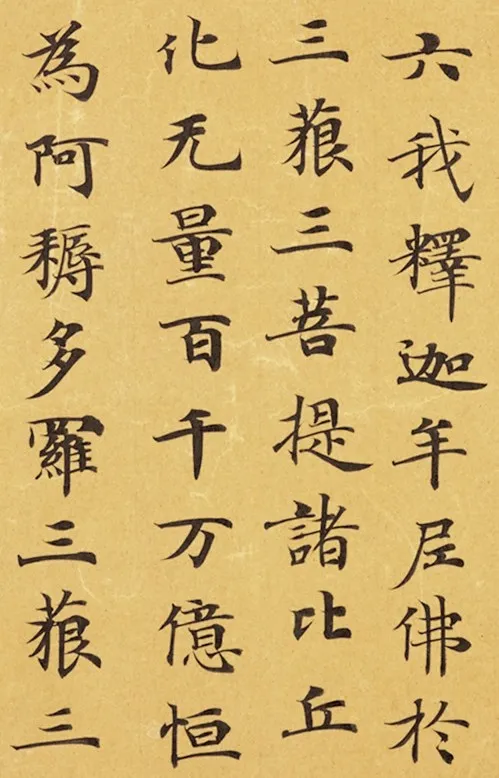 六我釋迦牟尼佛於
三藐三菩提諸比丘
化无量百千万億恒
為阿耨多羅三藐三